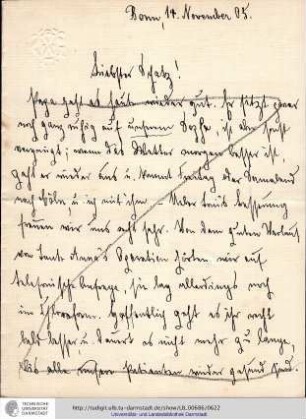 Bonn, 14. November 05.
Liebster Schatz!
Papa geht es heute wieder gut. Er sitzt zwar
noch ganz ruhig auf unserem Sopha, ist aber sehr
vergnügt; wenn das Wetter morgen besser ist,
geht er wieder aus u. kommt Freitag oder Sonnabend
nach u. ich mit ihm.
freuen wir uns sehr. Von dem guten Verlauf
von Tante Anna's Operation hörten wir auf
telefonische Anfrage, sie lag allerdings noch
im Hoffentlich geht es ihr recht
bald besser, u. dauert es nicht mehr zu lange,
bis alle wieder gesund sind.
TECHNISCHE
UNIVERSITÄT
DARMSTADT
http://tudigit.ulb.tu-darmstadt.de/show/LB_00686/0622
Universitäts- und Landesbibliothek Darmstadt